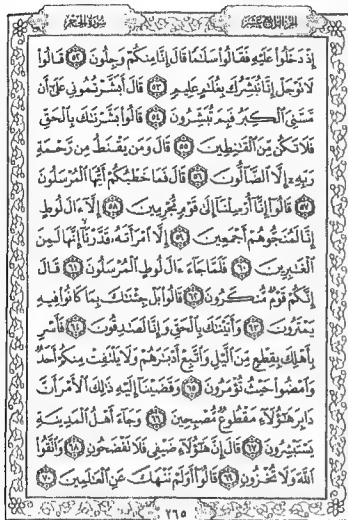 الجزء الرابع عشر سورة الحجر
إِذْ دَخَلُوا۟ عَلَيْهِ فَقَالُوا۟ سَلَٰمًا قَالَ إِنَّا مِنكُمْ وَجِلُونَ ٥٢ قَالُوا۟
لَا تَوْجَلْ إِنَّا نُبَشِّرُكَ بِغُلَٰمٍ عَلِيمٍ ٥٣ قَالَ أَبَشَّرْتُمُونِى عَلَىٰٓ أَن
مَّسَّنِىَ ٱلْكِبَرُ فَبِمَ تُبَشِّرُونَ ٥٤ قَالُوا۟ بَشَّرْنَٰكَ بِٱلْحَقِّ
فَلَا تَكُن مِّنَ ٱلْقَٰنِطِينَ ٥٥ قَالَ وَمَن يَقْنَطُ مِن رَّحْمَةِ
رَبِّهِۦٓ إِلَّا ٱلضَّآلُّونَ ٥٦ قَالَ فَمَا خَطْبُكُمْ أَيُّهَا ٱلْمُرْسَلُونَ
٥٧ قَالُوٓا۟ إِنَّآ أُرْسِلْنَآ إِلَىٰ قَوْمٍ مُّجْرِمِينَ ٥٨ إِلَّآ ءَالَ لُوطٍ
إِنَّا لَمُنَجُّوهُمْ أَجْمَعِينَ ٥٩ إِلَّا ٱمْرَأَتَهُۥ قَدَّرْنَآ إِنَّهَا لَمِنَ
ٱلْغَٰبِرِينَ ٦٠ فَلَمَّا جَآءَ ءَالَ لُوطٍ ٱلْمُرْسَلُونَ ٦١ قَالَ
إِنَّكُمْ قَوْمٌ مُّنكَرُونَ ٦٢ قَالُوا۟ بَلْ جِئْنَٰكَ بِمَا كَانُوا۟ فِيهِ
يَمْتَرُونَ ٦٣ وَأَتَيْنَٰكَ بِٱلْحَقِّ وَإِنَّا لَصَٰدِقُونَ ٦٤ فَأَسْرِ
بِأَهْلِكَ بِقِطْعٍ مِّنَ ٱلَّيْلِ وَٱتَّبِعْ أَدْبَٰرَهُمْ وَلَا يَلْتَفِتْ مِنكُمْ أَحَدٌ
وَٱمْضُوا۟ حَيْثُ تُؤْمَرُونَ ٦٥ وَقَضَيْنَآ إِلَيْهِ ذَٰلِكَ ٱلْأَمْرَ أَنَّ
دَابِرَ هَٰٓؤُلَآءِ مَقْطُوعٌ مُّصْبِحِينَ ٦٦ وَجَآءَ أَهْلُ ٱلْمَدِينَةِ
يَسْتَبْشِرُونَ ٦٧ قَالَ إِنَّ هَٰٓؤُلَآءِ ضَيْفِى فَلَا تَفْضَحُونِ ٦٨ وَٱتَّقُوا۟
ٱللَّهَ وَلَا تُخْزُونِ ٦٩ قَالُوٓا۟ أَوَلَمْ نَنْهَكَ عَنِ ٱلْعَٰلَمِينَ ٧٠
٢٦٥